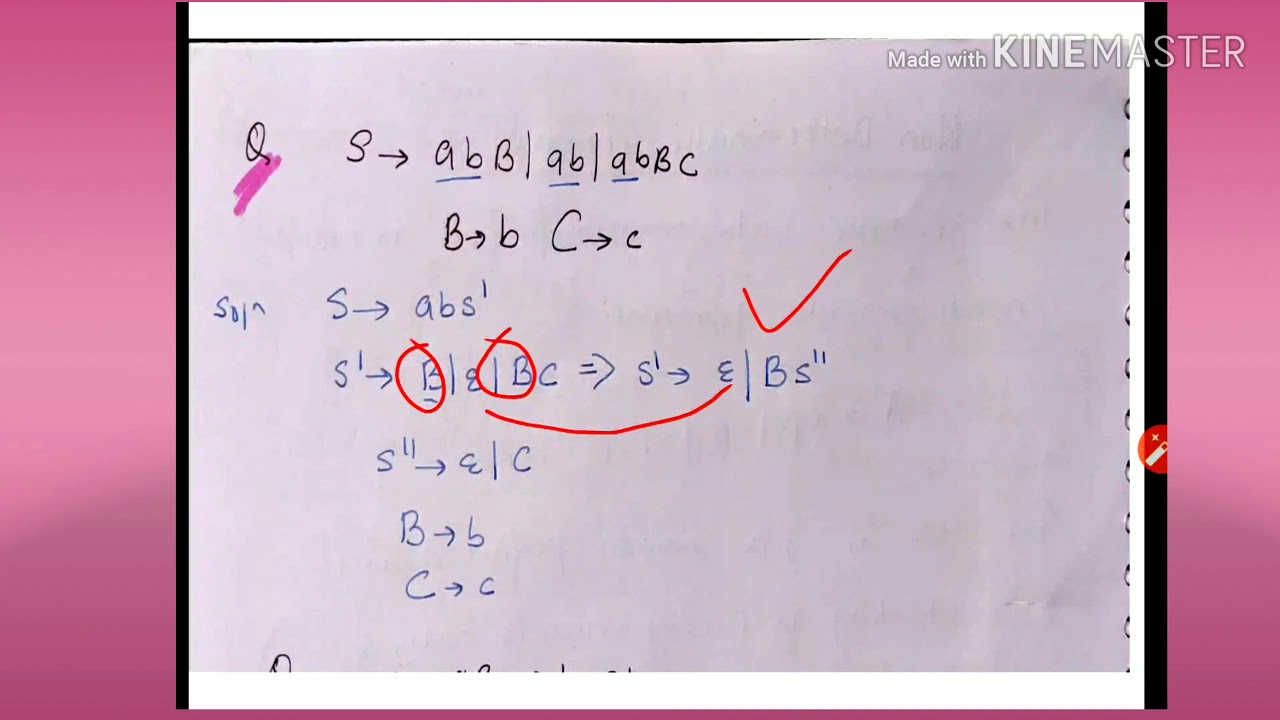 Made with KINEMASTER
Q S → abB | ab | abBC
B → b C → c
Soln S → abs'
s' → B | ε | BC => s' → ε | Bs''
s'' → ε | C
B → b
C → c